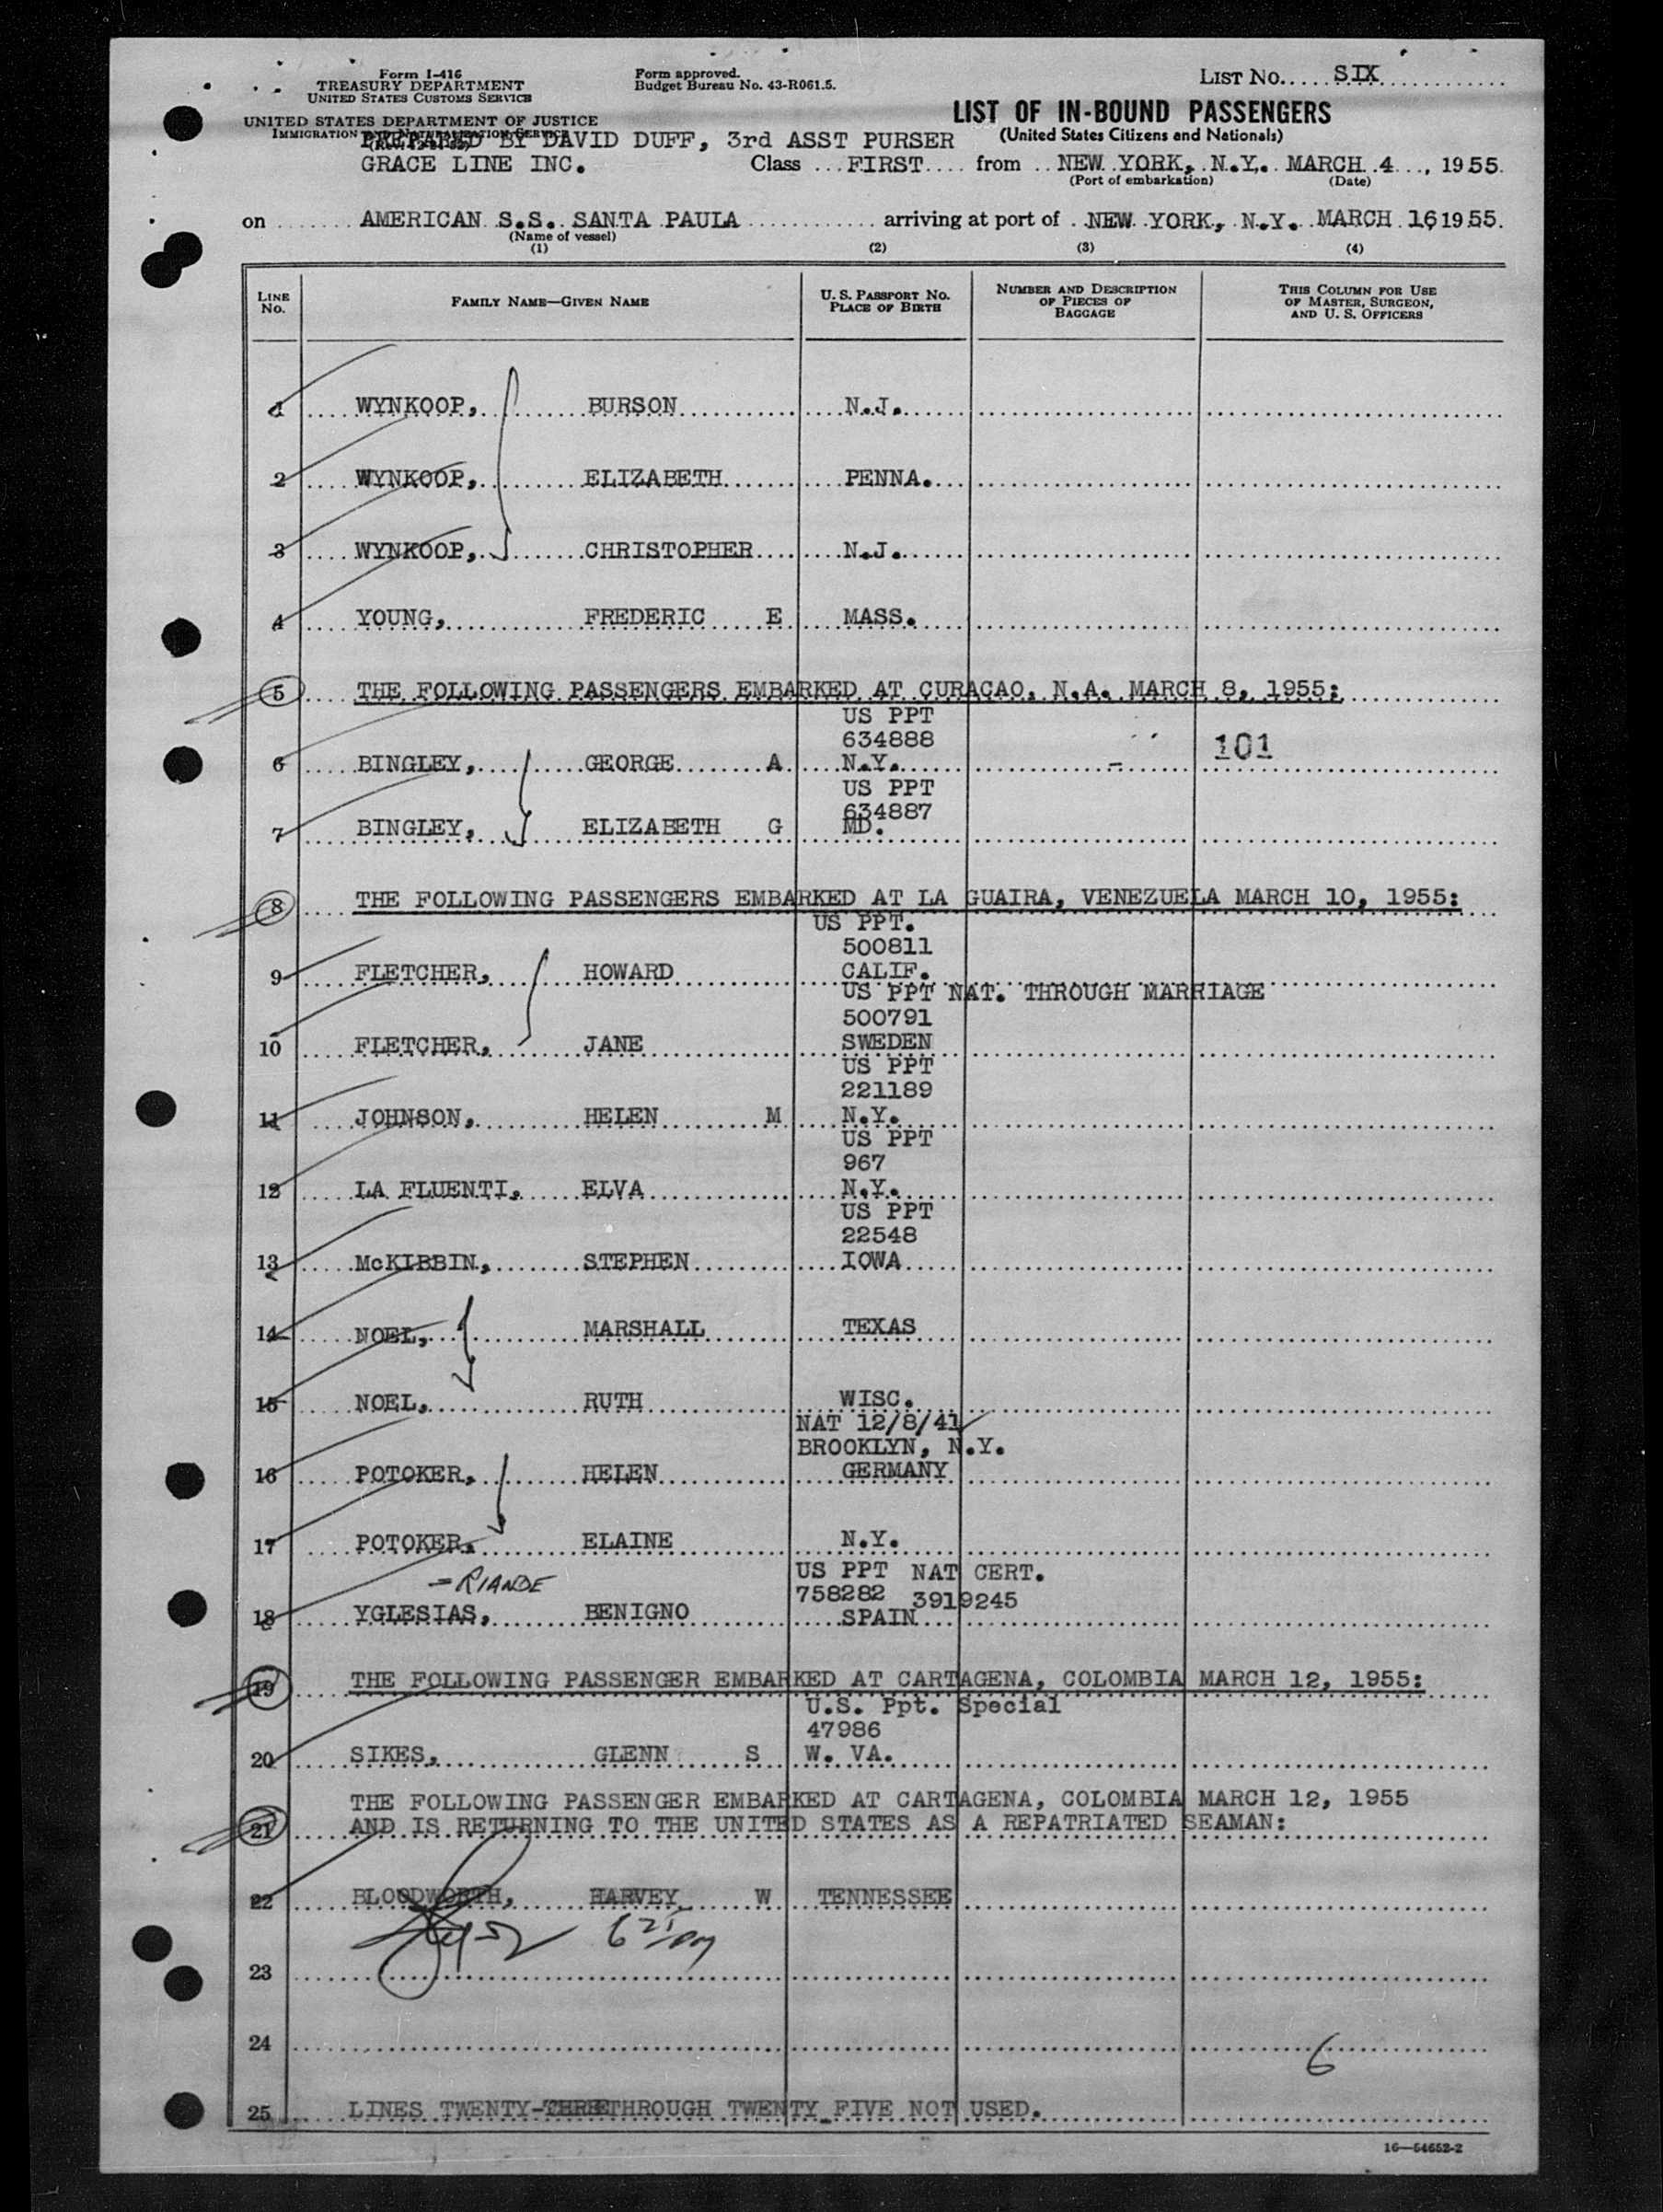 Form I-416
TREASURY DEPARTMENT
UNITED STATES CUSTOMS SERVICE
UNITED STATES DEPARTMENT OF JUSTICE
IMMIGRATION AND NATURALIZATION SERVICE
Form approved.
Budget Bureau No. 43-R061.5.
LIST NO. SIX
LIST OF IN-BOUND PASSENGERS
(United States Citizens and Nationals)
PREPARED BY DAVID DUFF, 3rd ASST PURSER
GRACE LINE INC. Class FIRST from NEW YORK, N.Y. MARCH 4, 1955.
(Port of embarkation) (Date)
on AMERICAN S.S. SANTA PAULA arriving at port of NEW YORK, N.Y. MARCH 16 1955.
(Name of vessel)
(1) (2) (3) (4)
LINE NO. FAMILY NAME—GIVEN NAME U. S. PASSPORT NO. PLACE OF BIRTH NUMBER AND DESCRIPTION OF PIECES OF BAGGAGE THIS COLUMN FOR USE OF MASTER, SURGEON, AND U. S. OFFICERS
1 WYNKOOP, BURSON N.J.
2 WYNKOOP, ELIZABETH PENNA.
3 WYNKOOP, CHRISTOPHER N.J.
4 YOUNG, FREDERIC E MASS.
5 THE FOLLOWING PASSENGERS EMBARKED AT CURACAO, N.A. MARCH 8, 1955:
US PPT
634888
6 BINGLEY, GEORGE A N.Y. - 101
US PPT
634887
7 BINGLEY, ELIZABETH G MD.
8 THE FOLLOWING PASSENGERS EMBARKED AT LA GUAIRA, VENEZUELA MARCH 10, 1955:
US PPT.
500811
9 FLETCHER, HOWARD CALIF.
US PPT NAT. THROUGH MARRIAGE
500791
10 FLETCHER, JANE SWEDEN
US PPT
221189
11 JOHNSON, HELEN M N.Y.
US PPT
967
12 LA FLUENTI, ELVA N.Y.
US PPT
22548
13 McKIBBIN, STEPHEN IOWA
14 NOEL, MARSHALL TEXAS
15 NOEL, RUTH WISC.
NAT 12/8/41
BROOKLYN, N.Y.
16 POTOKER, HELEN GERMANY
17 POTOKER, ELAINE N.Y.
US PPT NAT CERT.
- RIANDE 758282 3919245
18 YGLESIAS, BENIGNO SPAIN
19 THE FOLLOWING PASSENGER EMBARKED AT CARTAGENA, COLOMBIA MARCH 12, 1955:
U.S. Ppt. Special
47986
20 SIKES, GLENN S W. VA.
THE FOLLOWING PASSENGER EMBARKED AT CARTAGENA, COLOMBIA MARCH 12, 1955
21 AND IS RETURNING TO THE UNITED STATES AS A REPATRIATED SEAMAN:
22 BLOODWORTH, HARVEY W TENNESSEE
23
24
6
25 LINES TWENTY-THREETHROUGH TWENTY FIVE NOT USED.
16—54652-2